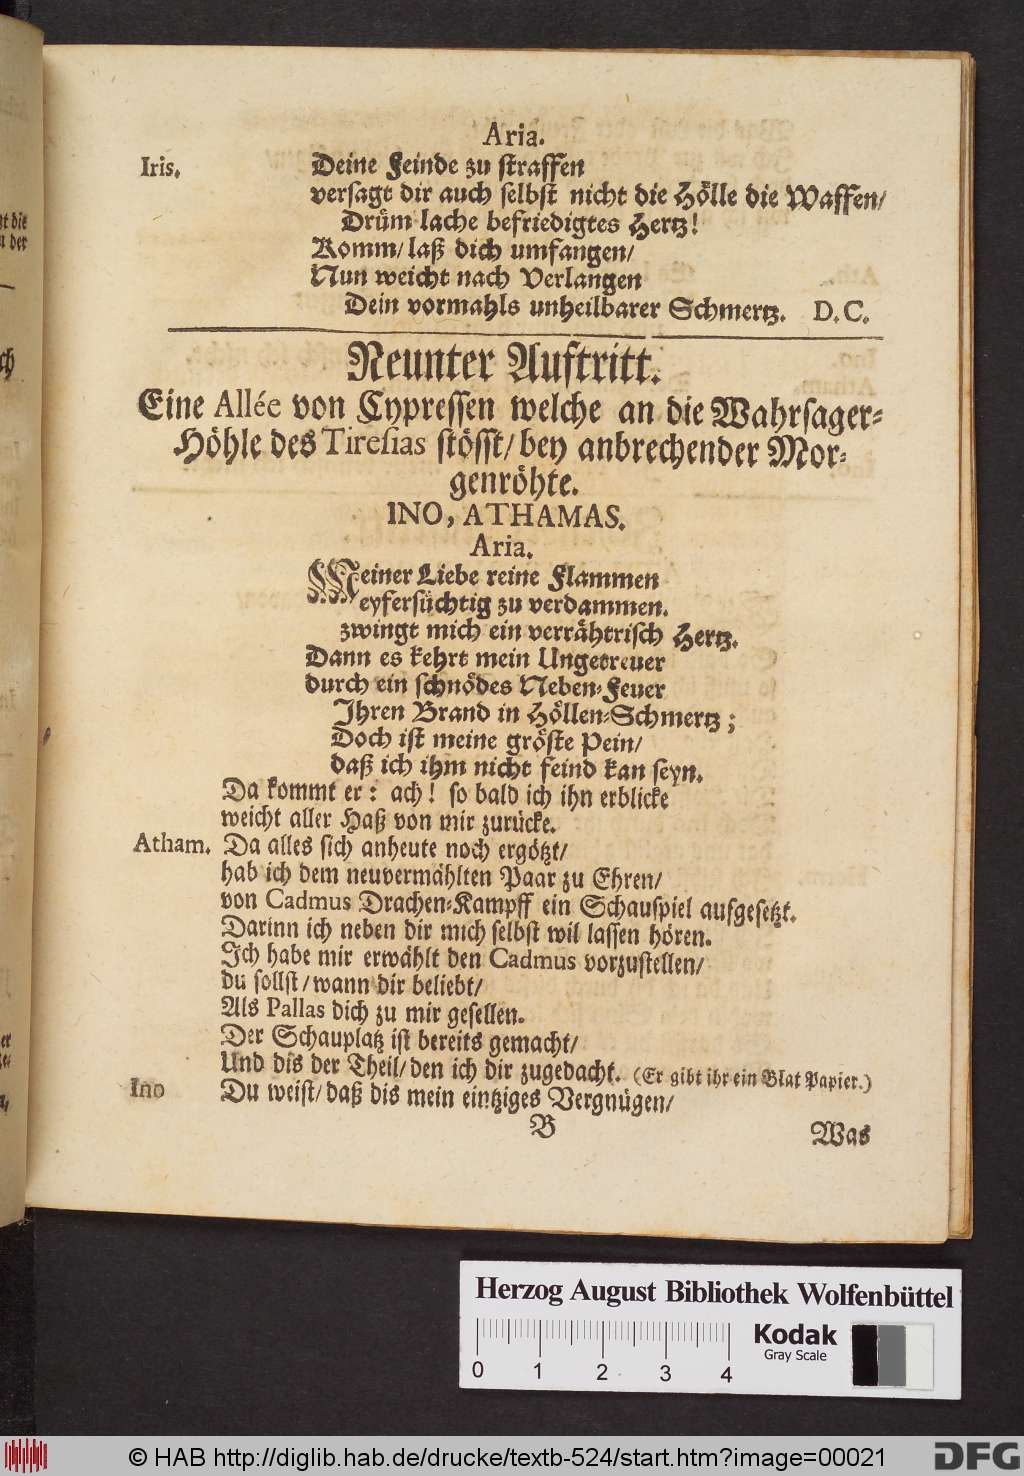 Aria.
Iris. Deine Feinde zu straffen
versagt dir auch selbst nicht die Hölle die Waffen/
Drüm lache befriedigtes Hertz!
Komm/ laß dich umfangen/
Nun weicht nach Verlangen
Dein vormahls unheilbarer Schmertz. D.C.
Neunter Auftritt.
Eine Allée von Cypressen welche an die Wahrsager-
Höhle des Tiresias stösst/ bey anbrechender Mor-
genröhte.
INO, ATHAMAS.
Aria.
Meiner Liebe reine Flammen
eyfersüchtig zu verdammen.
zwingt mich ein verrähtrisch Hertz.
Dann es kehrt mein Ungetreuer
durch ein schnödes Neben-Feuer
Ihren Brand in Höllen-Schmertz;
Doch ist meine gröste Pein/
daß ich ihm nicht feind kan seyn.
Da kommt er: ach! so bald ich ihn erblicke
weicht aller Haß von mir zurücke.
Atham. Da alles sich anheute noch ergötzt/
hab ich dem neuvermählten Paar zu Ehren/
von Cadmus Drachen-Kampff ein Schauspiel aufgesetzt.
Darinn ich neben dir mich selbst wil lassen hören.
Ich habe mir erwählt den Cadmus vorzustellen/
du sollst/ wann dir beliebt/
Als Pallas dich zu mir gesellen.
Der Schauplatz ist bereits gemacht/
Und dis der Theil/ den ich dir zugedacht. (Er gibt ihr ein Blat Papier.)
Ino Du weist/ daß dis mein eintziges Vergnügen/
B Was
Herzog August Bibliothek Wolfenbüttel
0 1 2 3 4
Kodak
Gray Scale
© HAB http://diglib.hab.de/drucke/textb-524/start.htm?image=00021
DFG